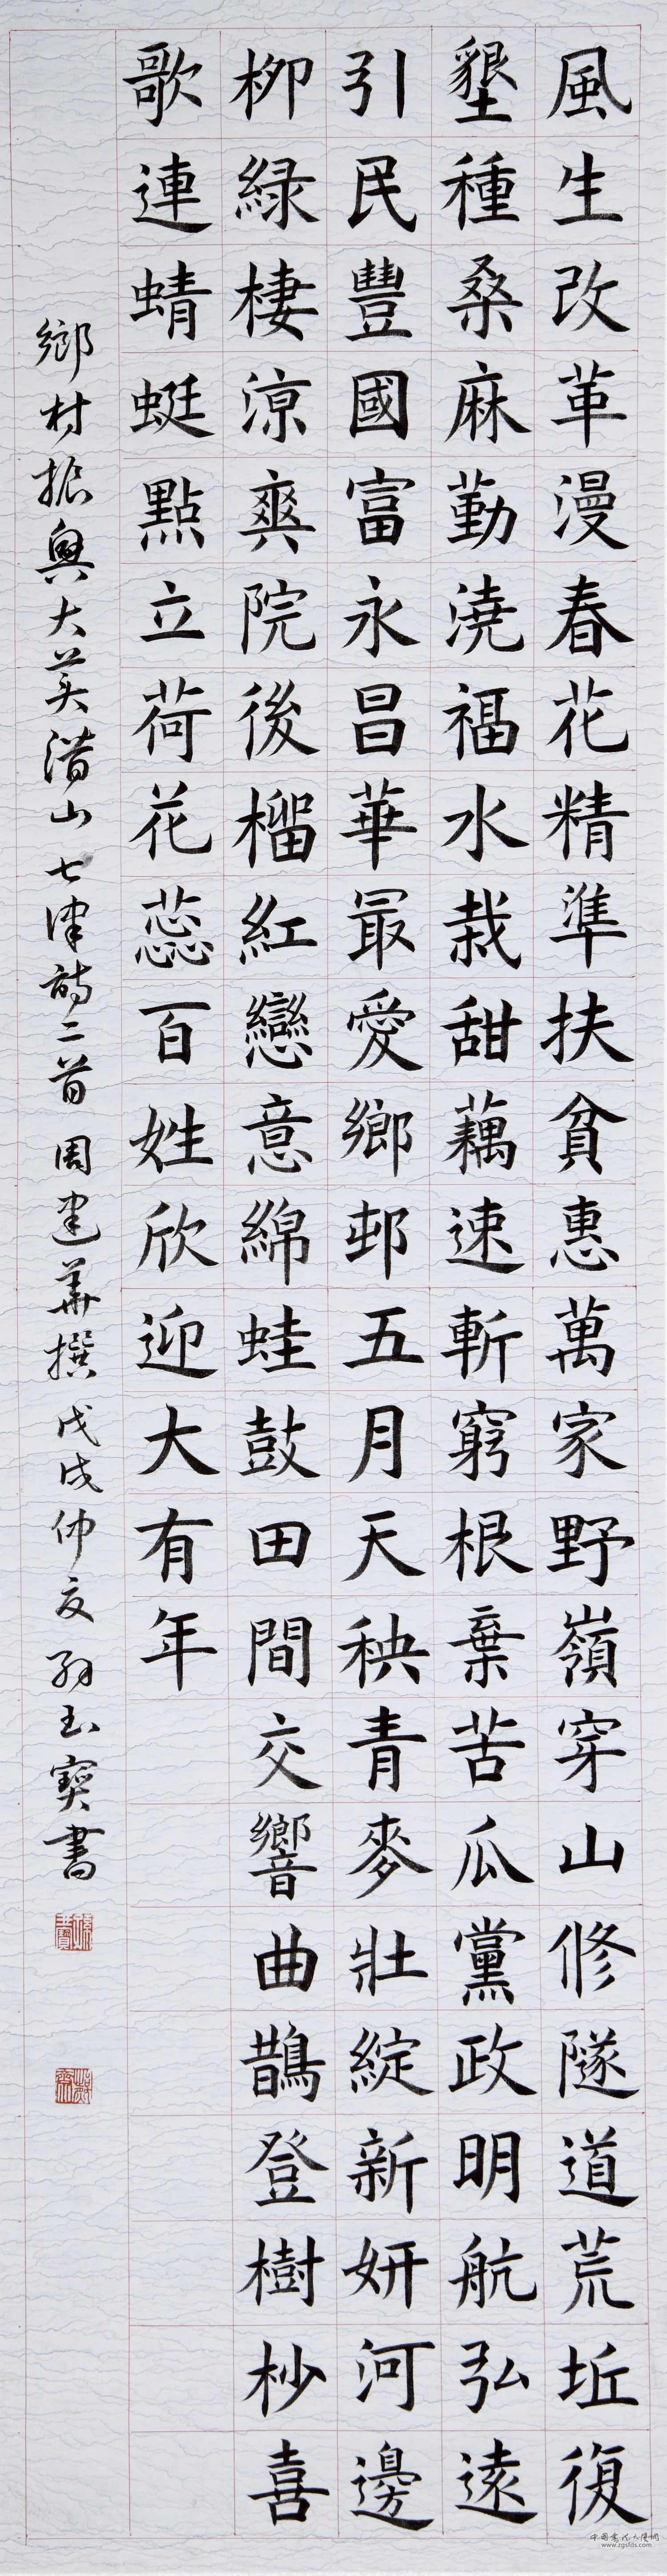 風生改革漫春花精準扶貧惠萬家野嶺穿山修隧道荒坵復
墾種桑麻勤澆福水栽甜藕速斬窮根棄苦瓜黨政明航弘遠
引民豐國富永昌華最愛鄉邨五月天秧青麥壯綻新妍河邊
柳綠棲涼爽院後榴紅戀意綿蛙鼓田間交響曲鵲登樹杪喜
歌連蜻蜓點立荷花蕊百姓欣迎大有年
鄉村振興大美潛山七律詩二首周建華撰戊戌仲夏孫玉寶書
www.zgsfds.com